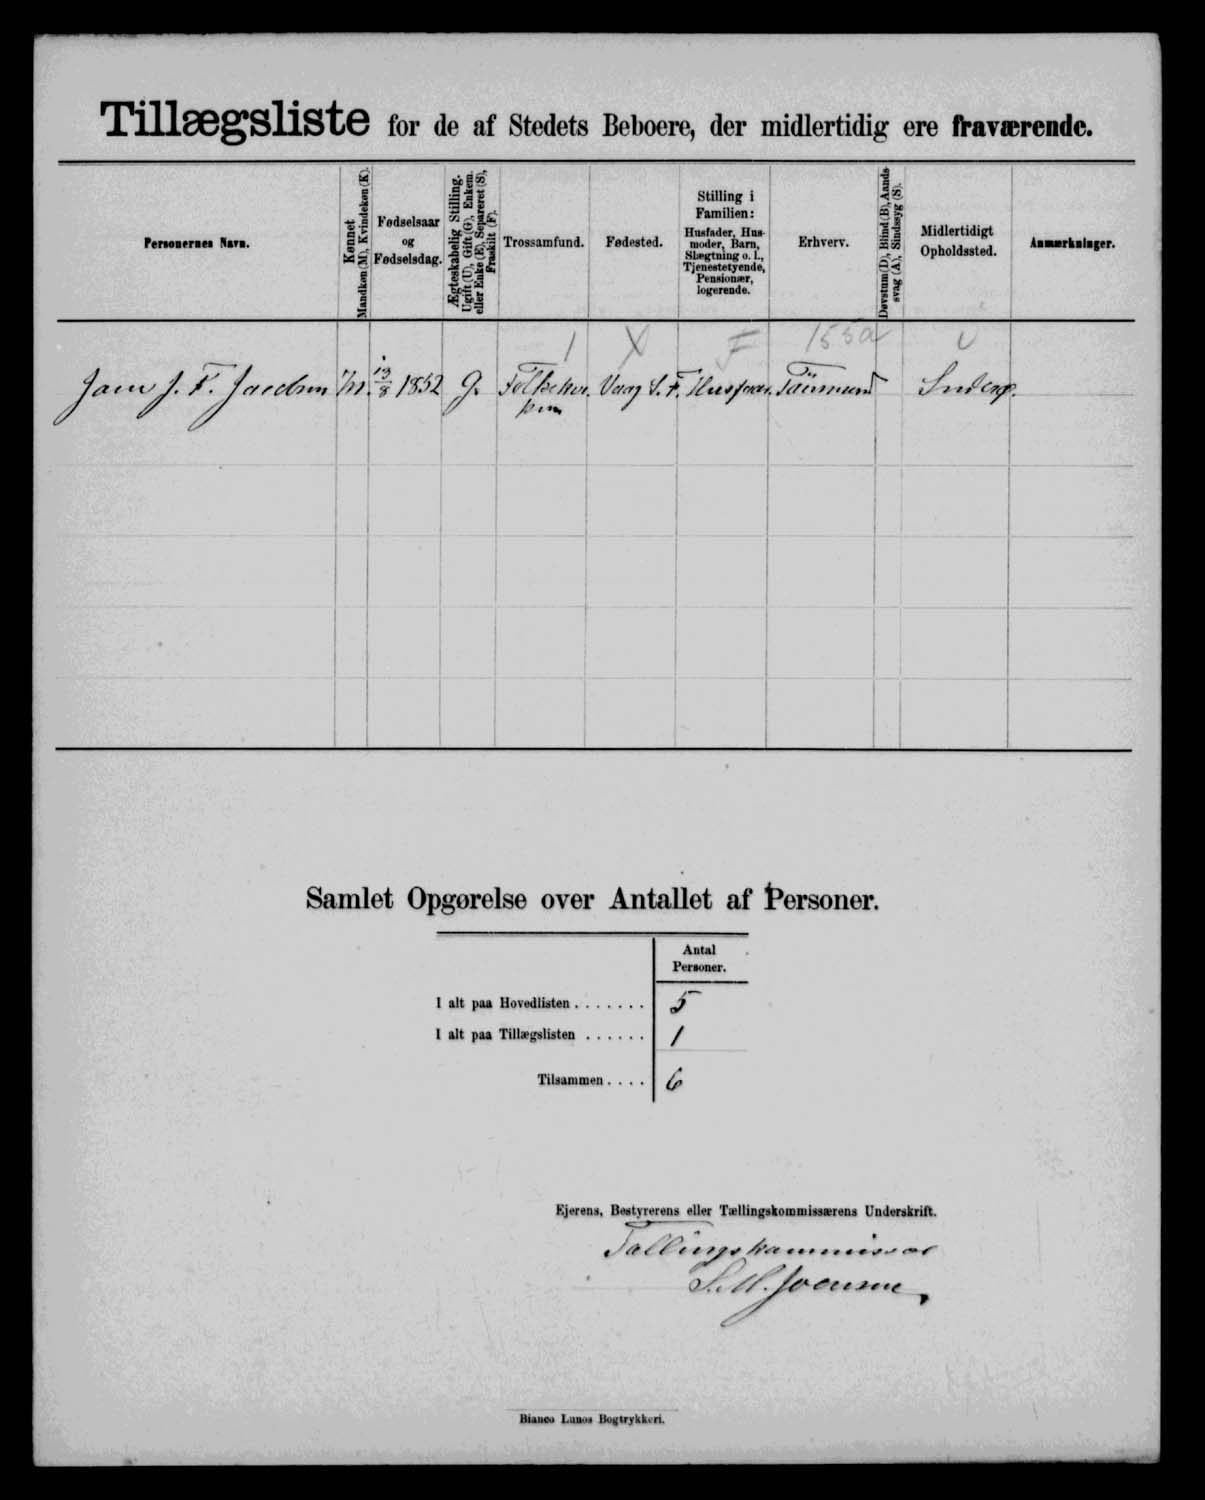 Tillægsliste for de af Stedets Beboere, der midlertidig ere fraværende.
Personernes Navn.
Kønnet
Mandkøn (M), Kvindekøn (K).
Fødselsaar
og
Fødselsdag.
Ægteskabelig Stilling.
Ugift (U), Gift (G), Enkem.
eller Enke (E), Separeret (S),
Fraskilt (F).
Trossamfund.
Fødested.
Stilling i
Familien:
Husfader, Hus-
moder, Barn,
Slægtning o. l.,
Tjenestetyende,
Pensionær,
logerende.
Erhverv.
Døvstum (D), Blind (B), Aands
svag (A), Sindssyg (S).
Midlertidigt
Opholdssted.
Anmærkninger.
1 X F 155a
J. F. Jacobsen M. 13/8 1852 G. Folkekir. Vaag S. F. Husfader.
ken
Samlet Opgørelse over Antallet af Personer.
Antal
Personer.
I alt paa Hovedlisten . . . . . . . 5
I alt paa Tillægslisten . . . . . . 1
Tilsammen . . . . 6
Ejerens, Bestyrerens eller Tællingskommissærens Underskrift.
Tællingskommissær
Bianco Lunos Bogtrykkeri.